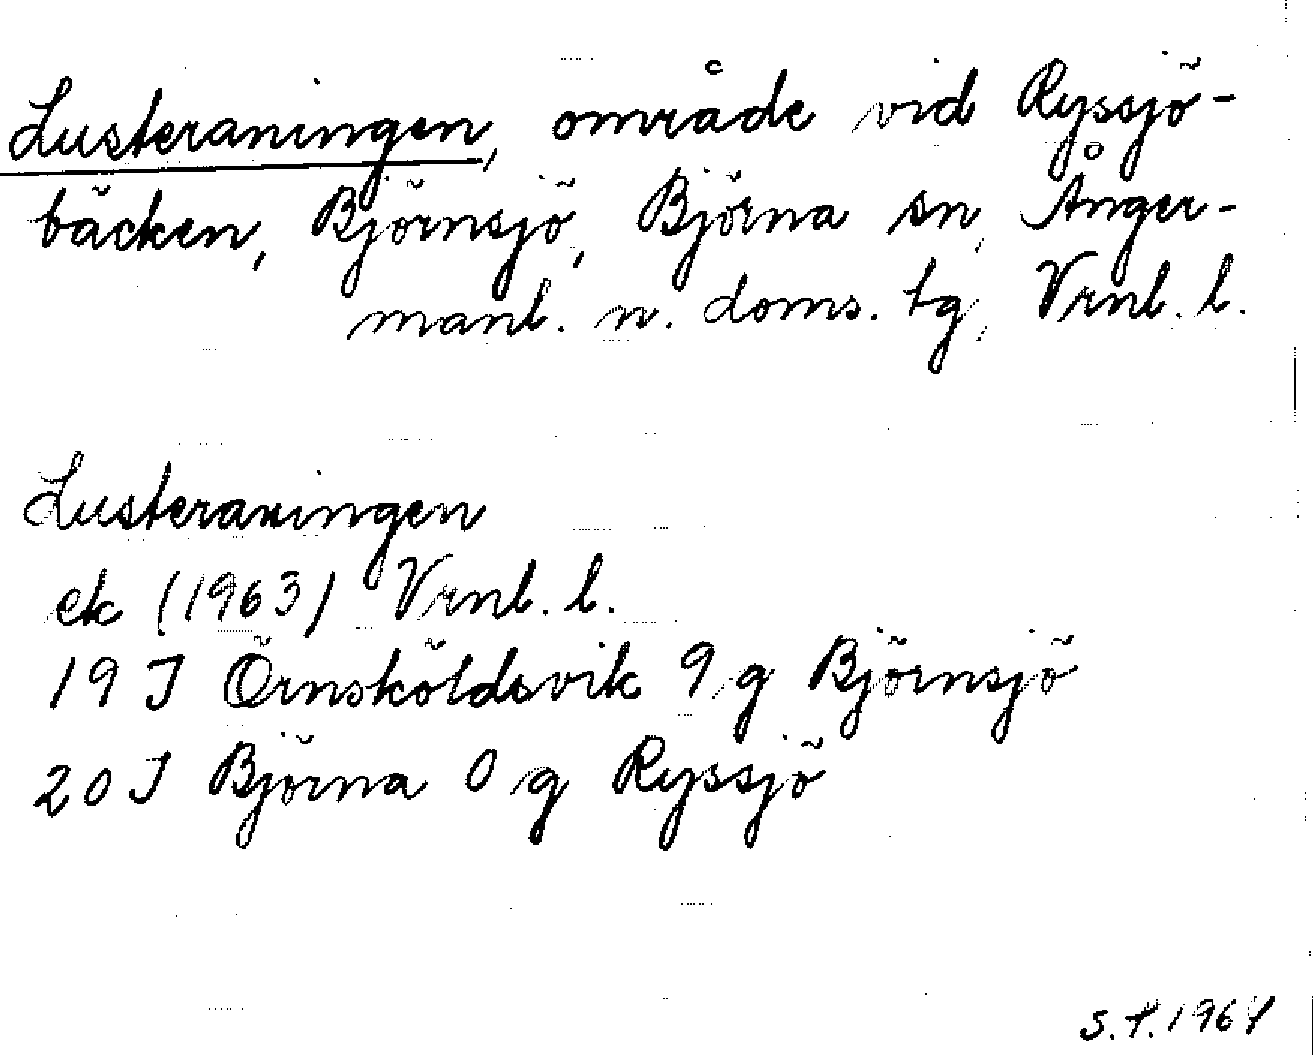 Lusteraningen, område vid Ryssjö-
bäcken, Björnsjö, Björna sn, Ånger-
manl. n. doms. tg, Vrnl. l.
Lusteraningen
ek (1963) Vrnl. l.
19 J Örnsköldsvik 9 g Björnsjö
20 J Björna 0 g Ryssjö
S.T. 1964